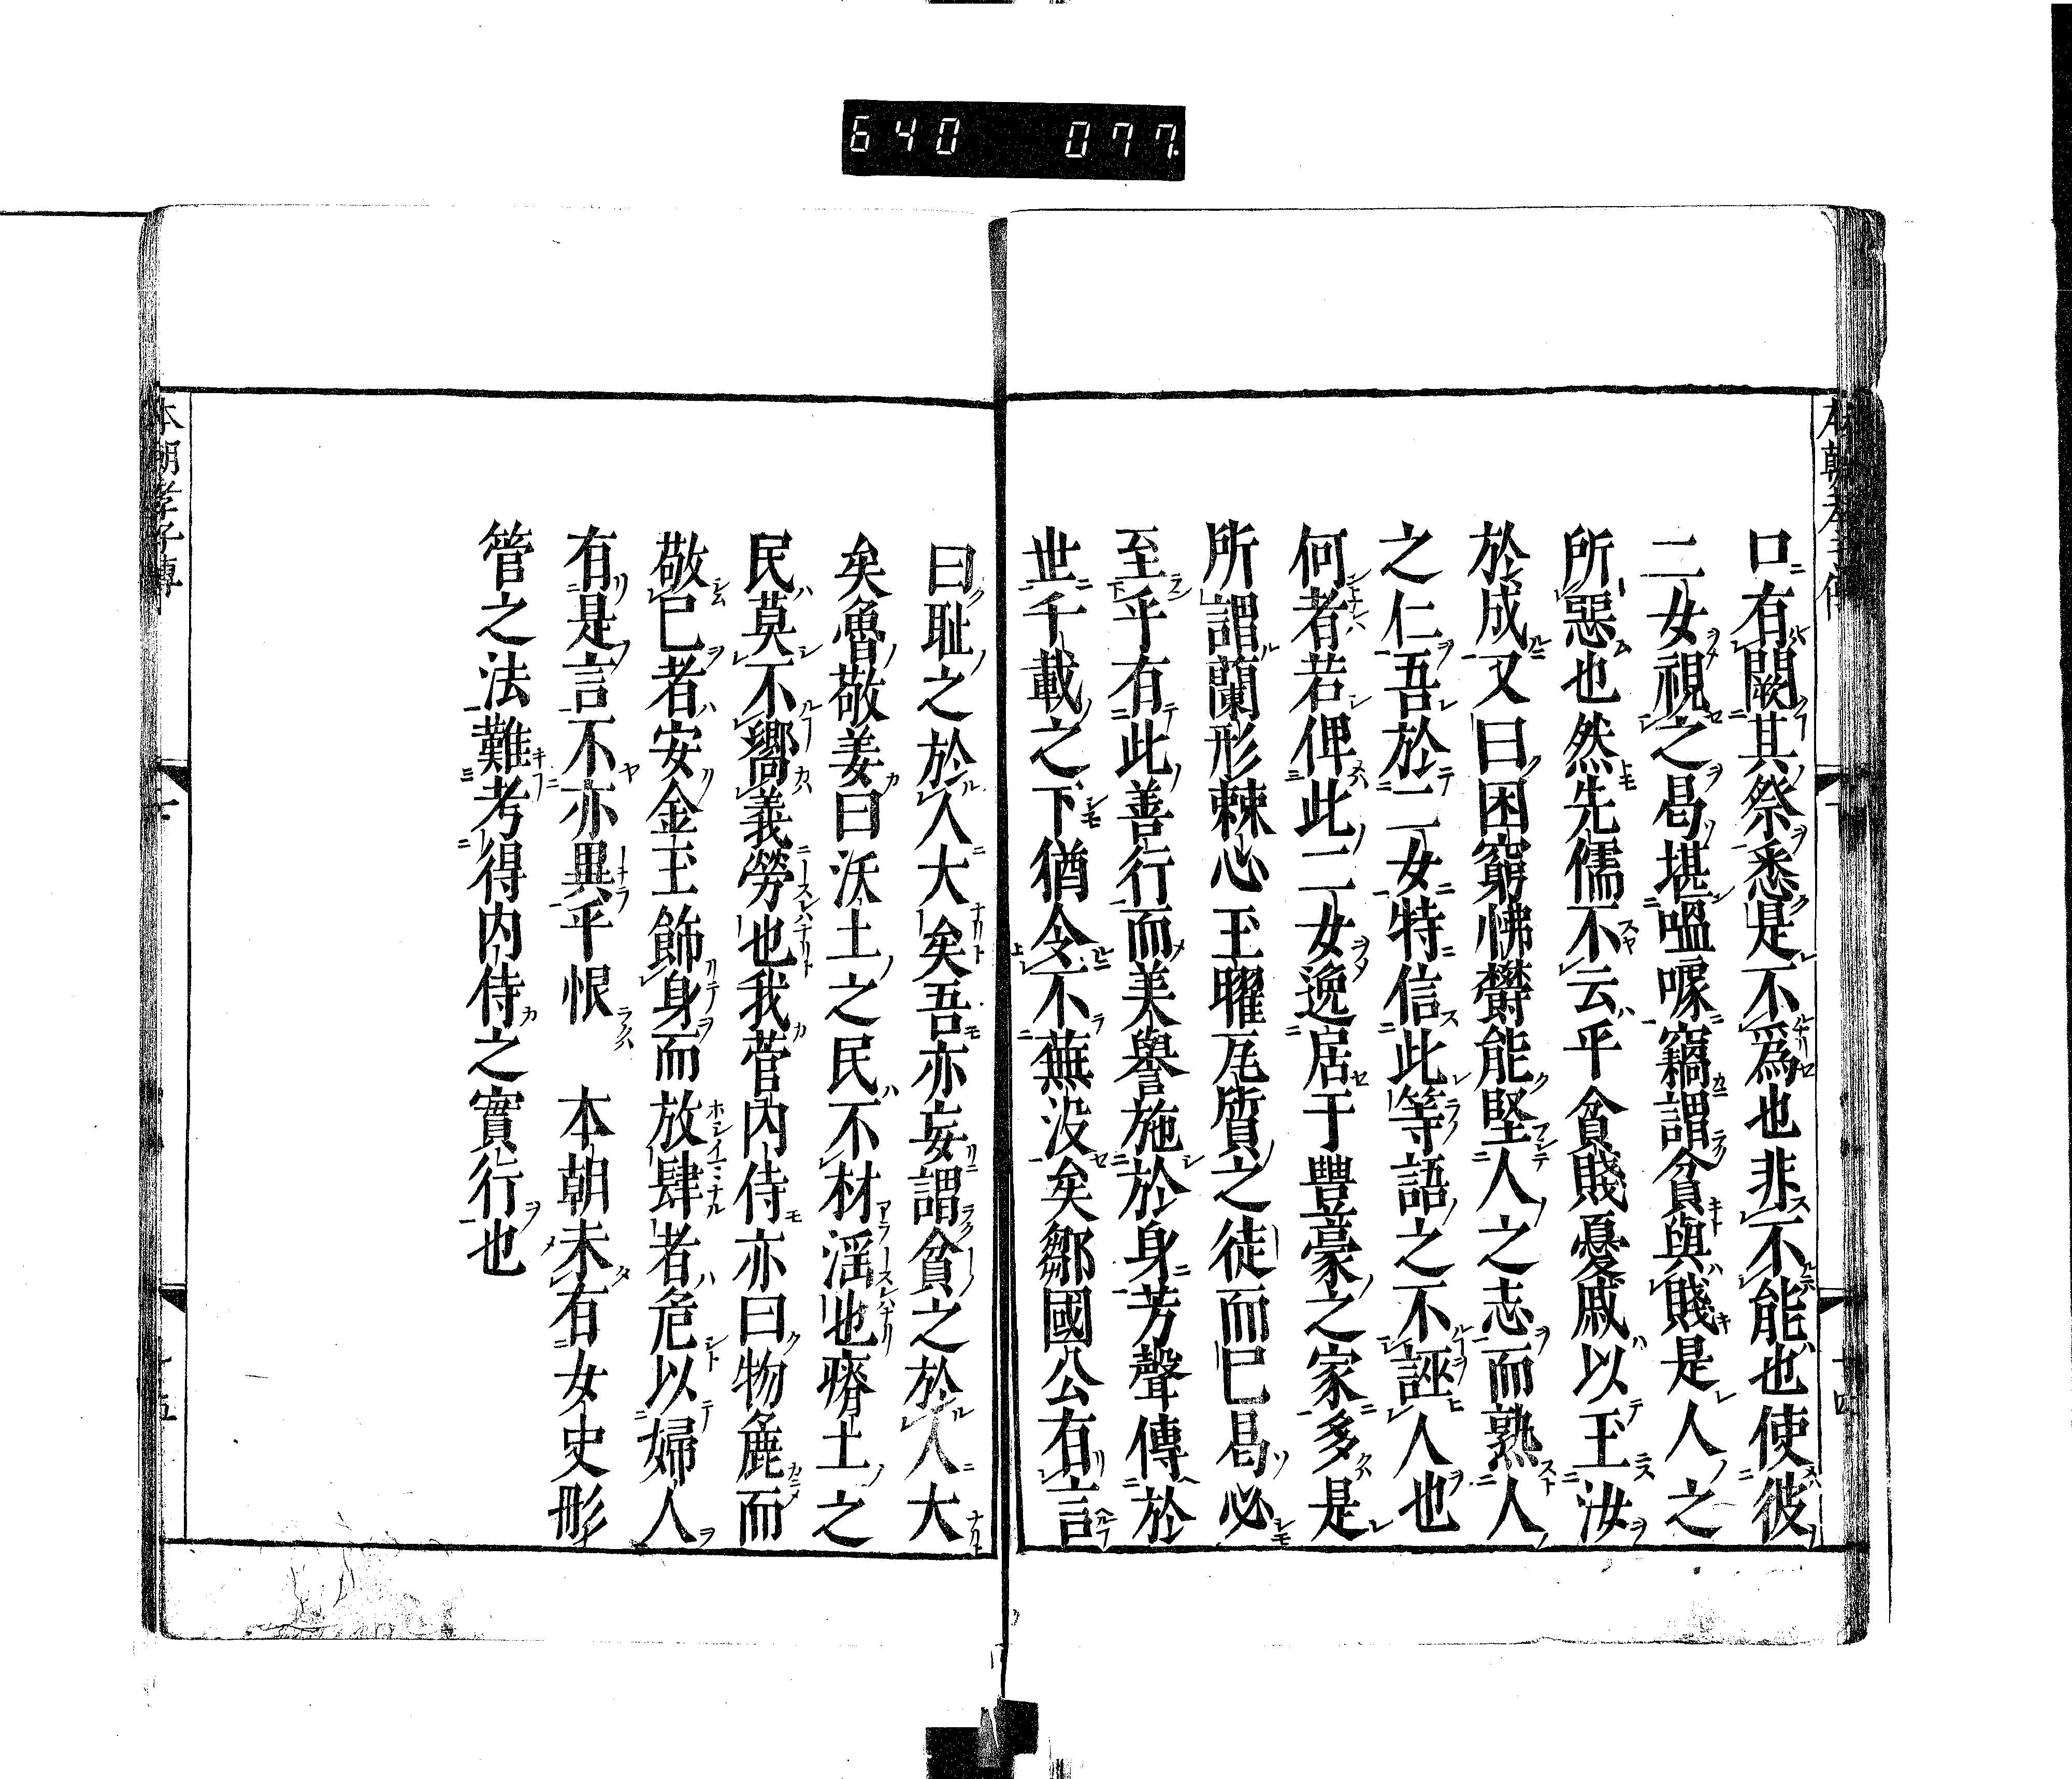 640 077.
口有闕其祭悉是不爲也非不能也使彼
二女視之曷堪嗢噱竊謂貧與賤是人之
所惡也然先儒不云乎貧賤憂戚以玉汝
於成又曰困窮怫欝能堅人之志而熟人
之仁吾於二女特信此等語之不誣人也
何者若俾此二女逸居于豐豪之家多是
所謂蘭形棘心玉曜瓦質之徒而已曷必
至乎有此善行而美譽施於身芳聲傳於
世千載之下猶令不蕪没矣鄒國公有言
曰耻之於人大矣吾亦妄謂貧之於人大
矣魯敬姜曰沃土之民不材滛也瘠土之
民莫不嚮義勞也我菅内侍亦曰物麁而
敬已者安金玉飾身而放肆者危以婦人
有是言不亦異乎恨 本朝未有女史彤
管之法難考得内侍之實行也
本朝孝子傳